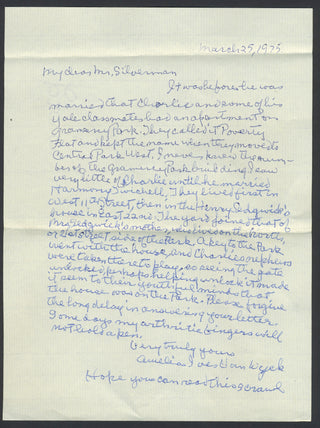 March 25, 1975
My dear Mr. Silverman
It was before he was
married that Charlie and some of his
Yale classmates had an apartment on
Gramercy Park. They called it Poverty
Flat and kept the name when they moved to
Central Park West, I never knew the num-
ber of the Gramercy Park building. I saw
very little of Charlie until he married
Harmony Twichell. They lived first in
West 11th Street, then in the Henry Sedgwick's
house in East 22nd. The yard joined that of
Mrs Sedgwick's mother, who lived on the North,
or 21st Street side of the Park. A key to the Park
went with the house, and Charlie's nephews
were taken there to play, so seeing the gate
unlocked, perhaps helping unlock it made
it seem to their youthful minds that
the house was on the Park. Please forgive
the long delay in answering your letter.
Some days my arthritic fingers will
not hold a pen.
Very truly yours
Amelia Ives Van Wyck
Hope you can read this scrawl